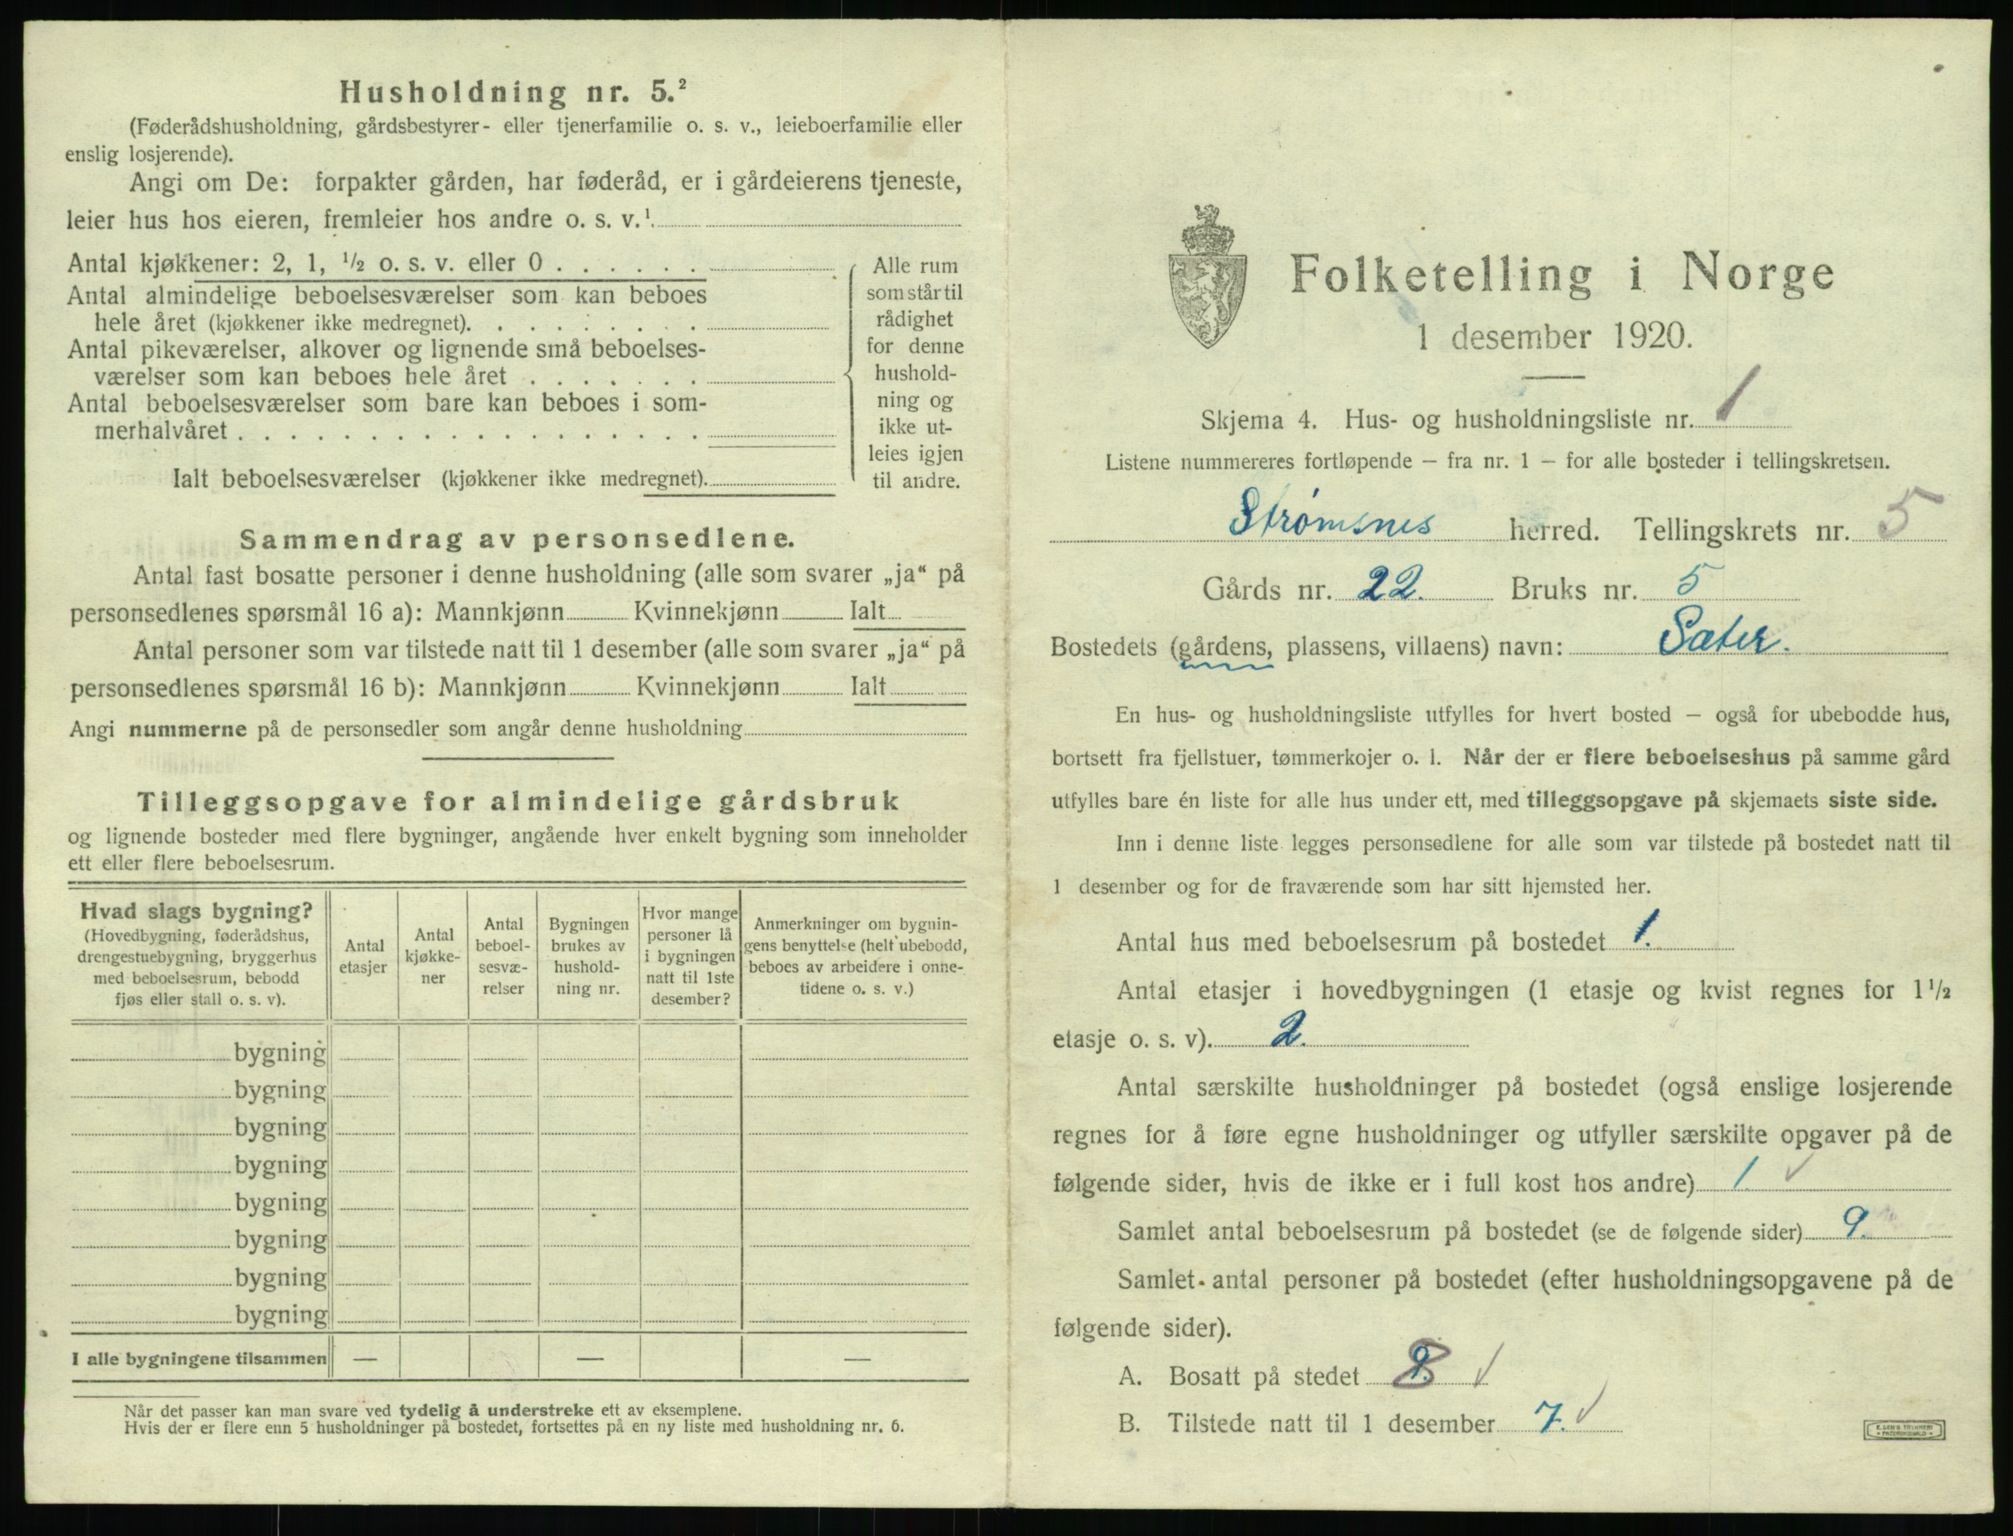 Husholdning nr. 5.²
(Føderådshusholdning, gårdsbestyrer- eller tjenerfamilie o. s. v., leieboerfamilie eller
enslig losjerende).
Angi om De: forpakter gården, har føderåd, er i gårdeierens tjeneste,
leier hus hos eieren, fremleier hos andre o. s. v.¹
Antal kjøkkener: 2, 1, ½ o. s. v. eller 0 . . . . . .
Antal almindelige beboelsesværelser som kan beboes
hele året (kjøkkener ikke medregnet). . . . . . . . .
Antal pikeværelser, alkover og lignende små beboelses-
værelser som kan beboes hele året . . . . . . .
Antal beboelsesværelser som bare kan beboes i som-
merhalvåret . . . . . . . . . . . . . . . . . .
Ialt beboelsesværelser (kjøkkener ikke medregnet).
Alle rum
som står til
rådighet
for denne
hushold-
ning og
ikke ut-
leies igjen
til andre.
Sammendrag av personsedlene.
Antal fast bosatte personer i denne husholdning (alle som svarer „ja“ på
personsedlenes spørsmål 16 a): Mannkjønn Kvinnekjønn Ialt
Antal personer som var tilstede natt til 1 desember (alle som svarer „ja“ på
personsedlenes spørsmål 16 b): Mannkjønn Kvinnekjønn Ialt
Angi nummerne på de personsedler som angår denne husholdning
Tilleggsopgave for almindelige gårdsbruk
og lignende bosteder med flere bygninger, angående hver enkelt bygning som inneholder
ett eller flere beboelsesrum.
Hvad slags bygning?
(Hovedbygning, føderådshus,
drengestuebygning, bryggerhus
med beboelsesrum, bebodd
fjøs eller stall o. s. v).
Antal
etasjer
Antal
kjøkke-
ner
Antal
beboel-
sesvæ-
relser
Bygningen
brukes av
hushold-
ning nr.
Hvor mange
personer lå
i bygningen
natt til 1ste
desember?
Anmerkninger om bygnin-
gens benyttelse (helt ubebodd,
beboes av arbeidere i onne-
tidene o. s. v.)
bygning
bygning
bygning
bygning
bygning
bygning
bygning
bygning
I alle bygningene tilsammen — — —
Når det passer kan man svare ved tydelig å understreke ett av eksemplene.
Hvis der er flere enn 5 husholdninger på bostedet, fortsettes på en ny liste med husholdning nr. 6.
Folketelling i Norge
1 desember 1920.
Skjema 4. Hus- og husholdningsliste nr. 1
Listene nummereres fortløpende – fra nr. 1 – for alle bosteder i tellingskretsen.
Strømsnes herred. Tellingskrets nr. 5
Gårds nr. 22. Bruks nr. 5
Bostedets (gårdens, plassens, villaens) navn: Sæter.
En hus- og husholdningsliste utfylles for hvert bosted – også for ubebodde hus,
bortsett fra fjellstuer, tømmerkojer o. l. Når der er flere beboelseshus på samme gård
utfylles bare én liste for alle hus under ett, med tilleggsopgave på skjemaets siste side.
Inn i denne liste legges personsedlene for alle som var tilstede på bostedet natt til
1 desember og for de fraværende som har sitt hjemsted her.
Antal hus med beboelsesrum på bostedet 1.
Antal etasjer i hovedbygningen (1 etasje og kvist regnes for 1½
etasje o. s. v). 2.
Antal særskilte husholdninger på bostedet (også enslige losjerende
regnes for å føre egne husholdninger og utfyller særskilte opgaver på de
følgende sider, hvis de ikke er i full kost hos andre) 1. ✓
Samlet antal beboelsesrum på bostedet (se de følgende sider) 9.
Samlet antal personer på bostedet (efter husholdningsopgavene på de
følgende sider).
A. Bosatt på stedet 8 ✓
B. Tilstede natt til 1 desember 7. ✓